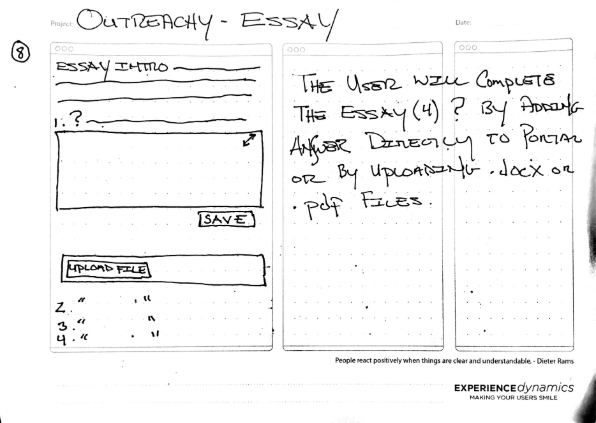 Project: OUTREACHY - ESSAY
Date:
8
ESSAY INTRO
1. ?
SAVE
UPLOAD FILE
2. " , "
3. " "
4. " . "
THE USER WILL COMPLETE
THE ESSAY (4) ? BY ADDING
ANSWER DIRECTLY TO PORTAL
OR BY UPLOADING .docx OR
.pdf FILES.
People react positively when things are clear and understandable. - Dieter Rams
EXPERIENCE dynamics
MAKING YOUR USERS SMILE